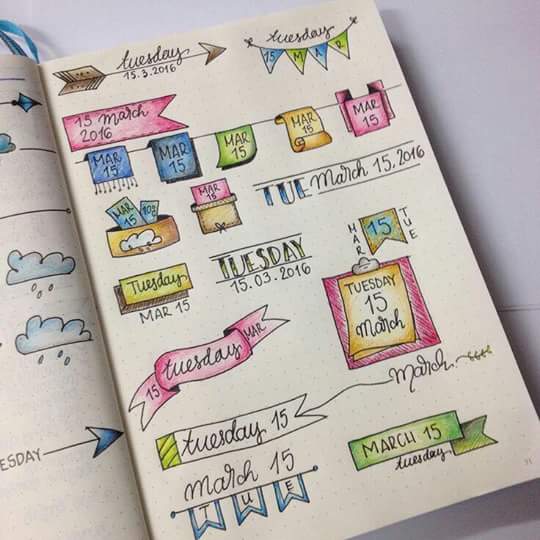 tuesday
15.3.2016
tuesday
15 MAR
15 March
2016
MAR
15
MAR
15
MAR
15
MAR
15
MAR
15
MAR
15
103
MAR
15
TUE March 15, 2016
MAR 15 TUE
Tuesday
MAR 15
TUESDAY
15.03.2016
TUESDAY
15
March
15 tuesday MAR
March.
tuesday 15
MARCH 15
tuesday
March 15
TUE
ESDAY